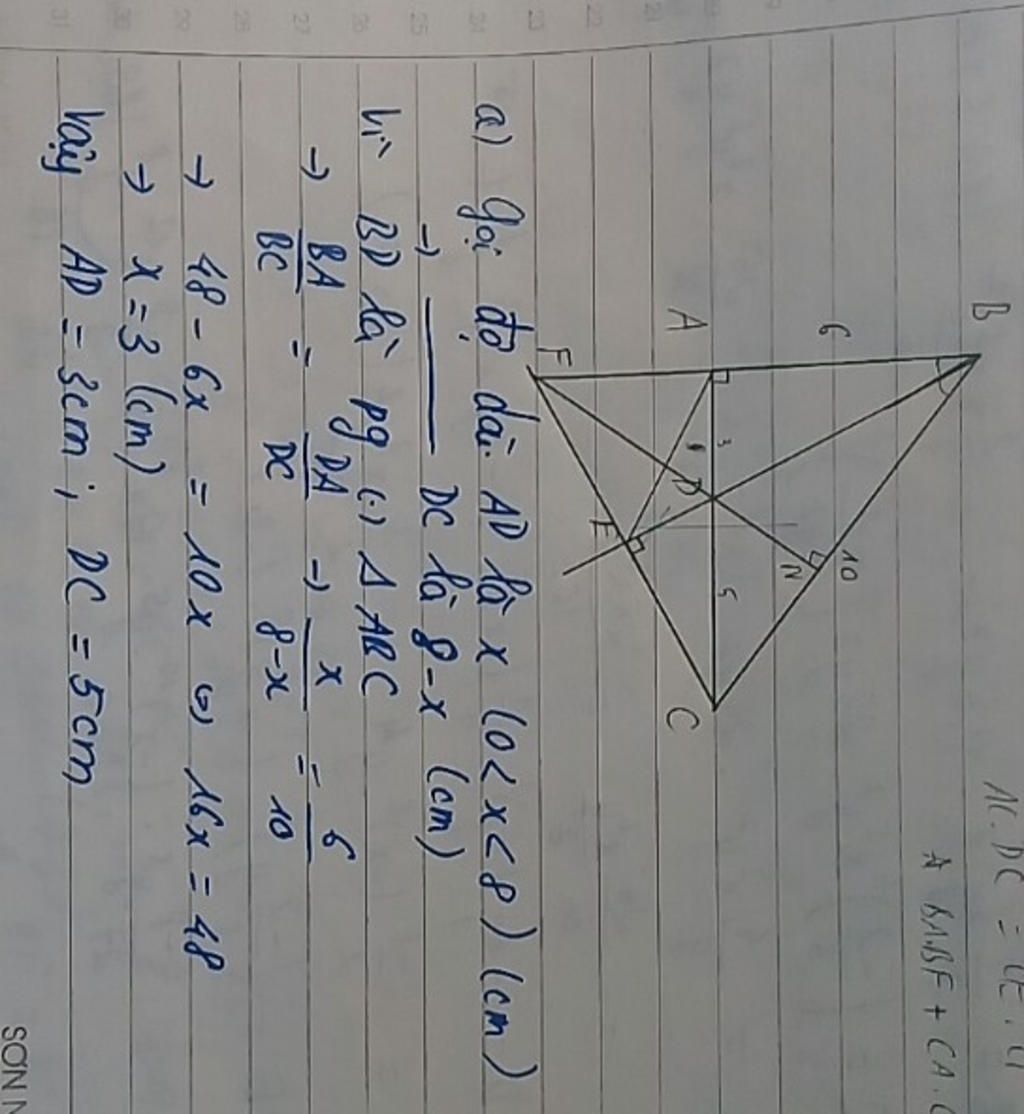 AC.DC = CE.
BA.BF + CA.
B
6
A
F
3
D
E
N
10
5
C
a) Gọi độ dài AD là x (0 < x < 8) (cm)
→ ——— DC là 8-x (cm)
Vì BD là pg (.) Δ ABC
→ BA/BC = DA/DC → x/8-x = 6/10
→ 48 - 6x = 10x ⇔ 16x = 48
→ x = 3 (cm)
Vậy AD = 3cm ; DC = 5cm
SƠN